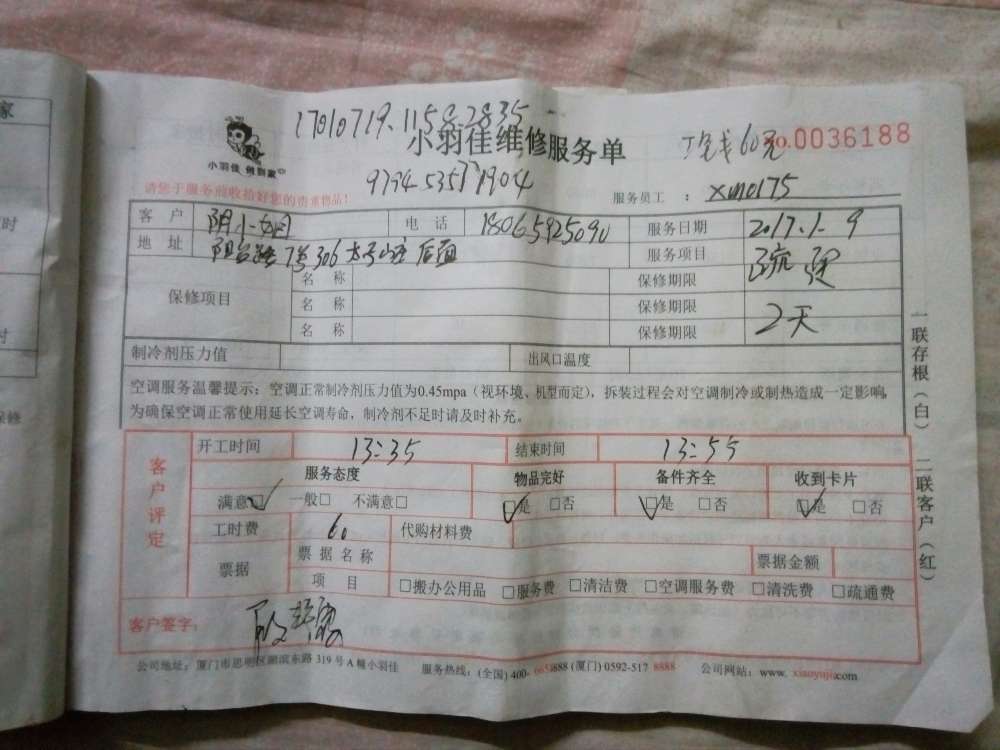 17010719.11582835
小羽佳维修服务单 现金60元 NO.0036188
小羽佳 领到家
9794535171904
请您于服务前收拾好您的贵重物品! 服务员工 : xm0175
客 户 阴小姐 电 话 18065925090 服务日期 2017.1.9
地 址 7号306 后面 服务项目 疏通
保修项目 名 称 保修期限
名 称 保修期限 2天
名 称 保修期限
制冷剂压力值 出风口温度
空调服务温馨提示:空调正常制冷剂压力值为0.45mpa(视环境、机型而定),拆装过程会对空调制冷或制热造成一定影响,
为确保空调正常使用延长空调寿命,制冷剂不足时请及时补充。
客户评定
开工时间 13:35 结束时间 13:55
服务态度 物品完好 备件齐全 收到卡片
满意☑ 一般□ 不满意□ ☑是 □否 ☑是 □否 ☑是 □否
工时费 60 代购材料费
票据 票据名称 票据金额
项 目 □搬办公用品 □服务费 □清洁费 □空调服务费 □清洗费 □疏通费
客户签字:
公司地址:厦门市思明区湖滨东路319号A幢小羽佳 服务热线:(全国)400-6658888 (厦门)0592-517 8888 公司网站:www. xiaoyujia.com
一联存根(白) 二联客户(红)
家
时
时
保修